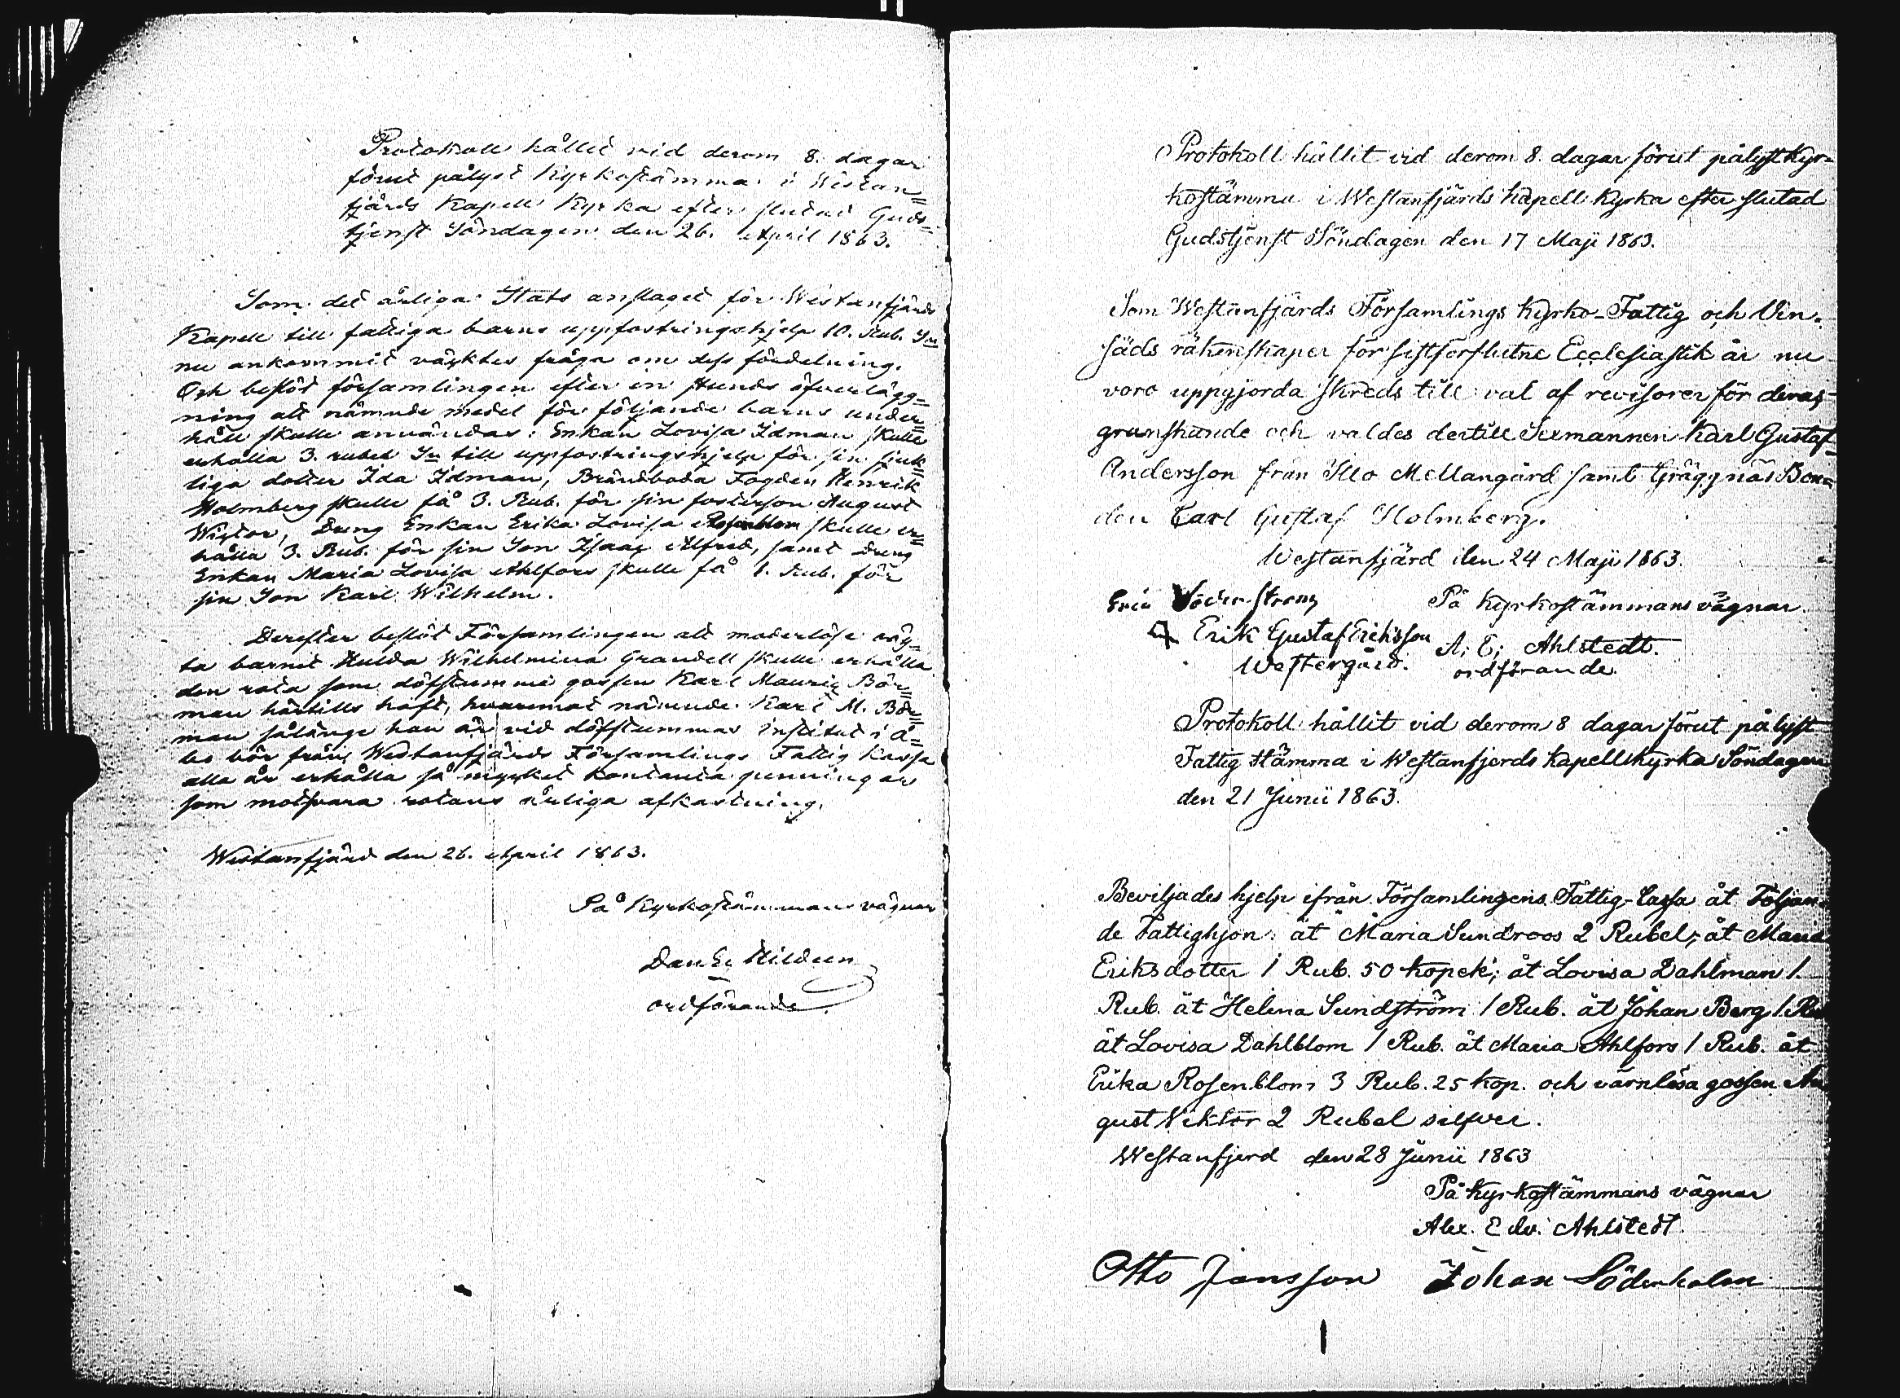 Protokoll hållit vid derom 8. dagar
förut pålyst Kyrkostämma i Westan=
fjärds Kapell Kyrka efter slutad Guds=
tjenst Söndagen den 26. April 1863.
Som det årliga Stats anslaget för Westanfjärds
Kapell till fattiga barns uppfostringshjelp 10. Rub. Sr
nu ankommit väcktes fråga om dess fördelning.
Och beslöt församlingen efter en stunds öfverlägg=
ning att nämnde medel för följande barns under=
håll skulle användas: Enkan Lovisa Idman skulle
erhålla 3. rubel Sr till uppfostringshjelp för sin sjuk=
liga dotter Ida Idman, Brändboda Fogden Henrik
Holmberg skulle få 3. Rub. för sin fosterson August
Wictor, Dreng Enkan Erika Lovisa Rosenblom skulle er=
hålla 3. Rub. för sin Son Isaac Alfred, samt Dreng
Enkan Maria Lovisa Ahlfors skulle få 1. Rub. för
sin Son Karl Wilhelm.
Derefter beslöt Församlingen att moderlösa
ta barnet Hulda Wilhelmina Grandell skulle erhålla
den rota som döfstumme gossen Karl Mauriz Bör=
man härtills haft, hvaremot nämnde Karl M. Bör=
man sålänge han är vid döfstummas institut i Å=
bo bör från Westanfjärds Församlings Fattig Kassa
alla år erhålla så mycket kontanta penningar
som motsvara rotans årliga afkastning.
Westanfjärd den 26. April 1863.
På Kyrkostämmans vägnar
Dan. Er. Hildeen
ordförande.
Protokoll hållit vid derom 8. dagar förut pålyst Kyr=
kostämma i Westanfjärds Kapell Kyrka efter slutad
Gudstjenst Söndagen den 17 Maji 1863.
Som Westanfjärds Församlings Kyrko-Fattig och Vin-
säds räkenskaper för sistförflutne Ecclesiastik år nu
voro uppgjorda skreds till val af revisorer för deras
granskande och valdes dertill Sexmannen Karl Gustaf
Andersson från Illo Mellangård samt Gräggnäs Bon=
den Carl Gustaf Holmberg.
Westanfjärd den 24 Maji 1863.
Eric Söderstrom På Kyrkostämmans vägnar
Erik Gustaf Eriksson A; E; Ahlstedt.
Westergård. ordförande.
Protokoll hållit vid derom 8 dagar förut pålyst
Fattig stämma i Westanfjerds Kapellkyrka Söndagen
den 21 Junii 1863.
Beviljades hjelp ifrån Församlingens Fattig-Cassa åt Följan-
de Fattighjon: åt Maria Sundroos 2 Rubel, åt Maria
Eriksdotter 1 Rub. 50 kopek; åt Lovisa Dahlman 1.
Rub. åt Helena Sundström 1 Rub. åt Johan Berg 1. Rub
åt Lovisa Dahlblom 1 Rub. åt Maria Ahlfors 1 Rub. åt
Erika Rosenblom 3 Rub. 25 kop. och värnlösa gossen Au
gust Viktor 2 Rubel silfver.
Westanfjerd den 28 Junii 1863
På Kyrkostämmans vägnar
Alex. Edv. Ahlstedt
Otto Jansson Johan Söderholm